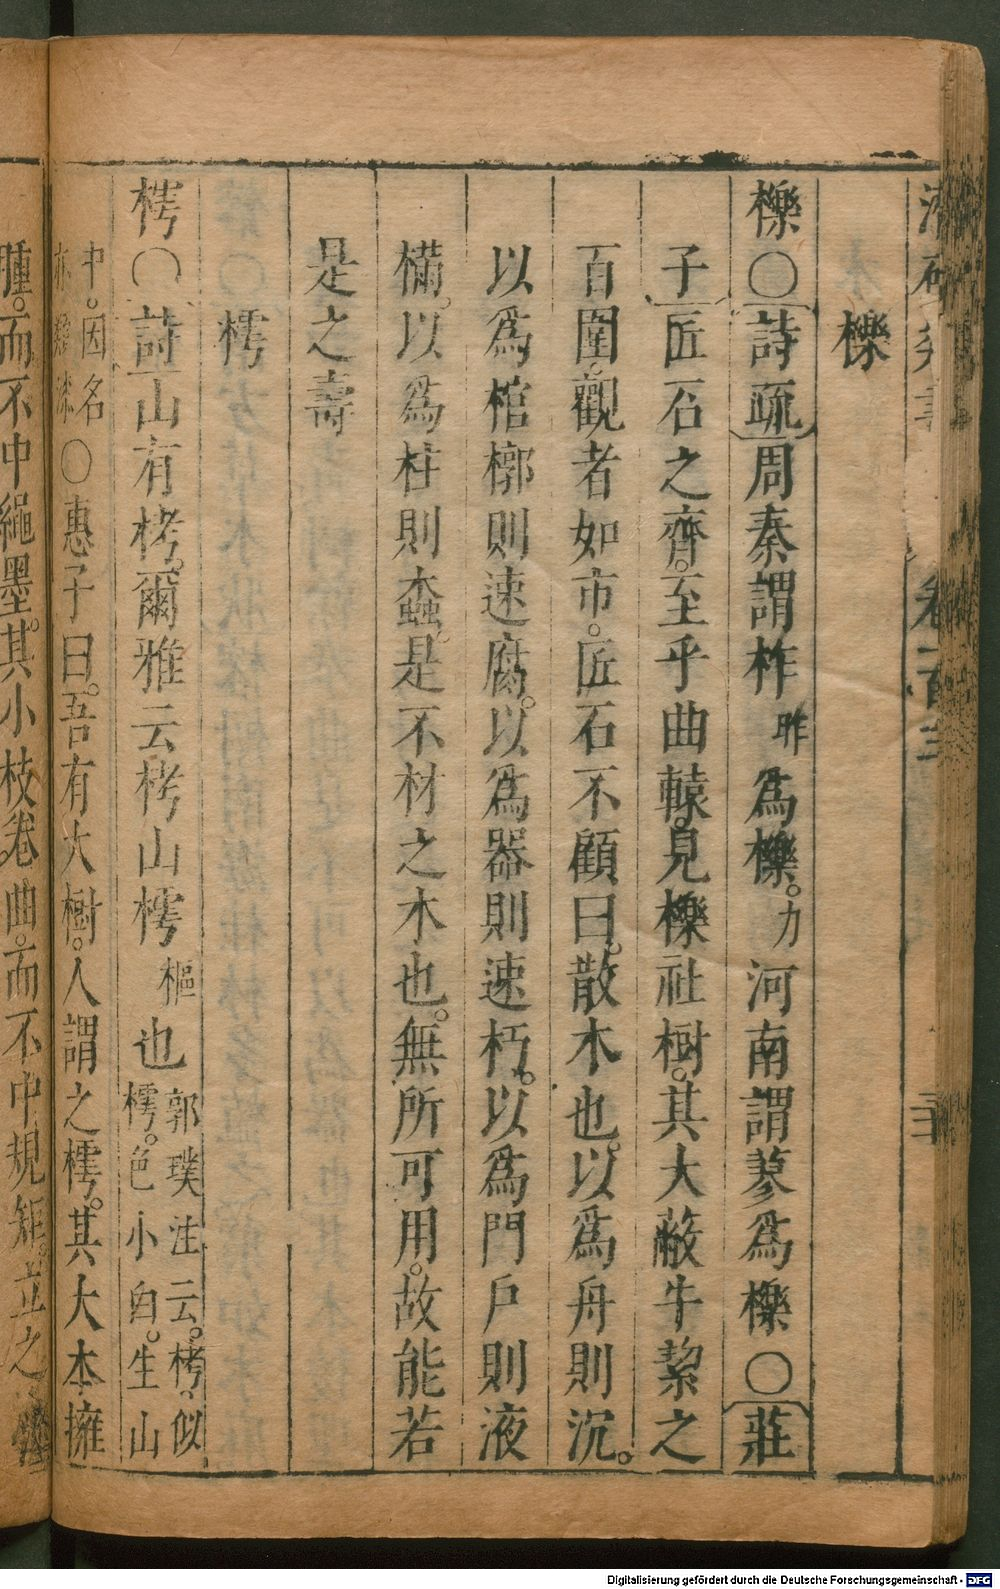 卷一百
櫟
櫟〇詩疏周秦謂柞昨為櫟。力河南謂蓼為櫟〇莊
子匠石之齊。至乎曲轅見櫟社樹。其大蔽牛絜之
百圍。觀者如市。匠石不顧曰。散木也。以為舟則沉。
以為棺槨則速腐。以為器則速朽。以為門戶則液
樠。以為柱則蠹。是不材之木也。無所可用。故能若
是之壽
樗
樗〇詩山有栲。爾雅云栲山樗樞也郭璞注云。栲。似
樗。色小白。生山
中。因名
亦類漆〇惠子曰。吾有大樹。人謂之樗。其大本擁
腫。而不中繩墨。其小枝卷曲。而不中規矩。立之
Digitalisierung gefördert durch die Deutsche Forschungsgemeinschaft - DFG